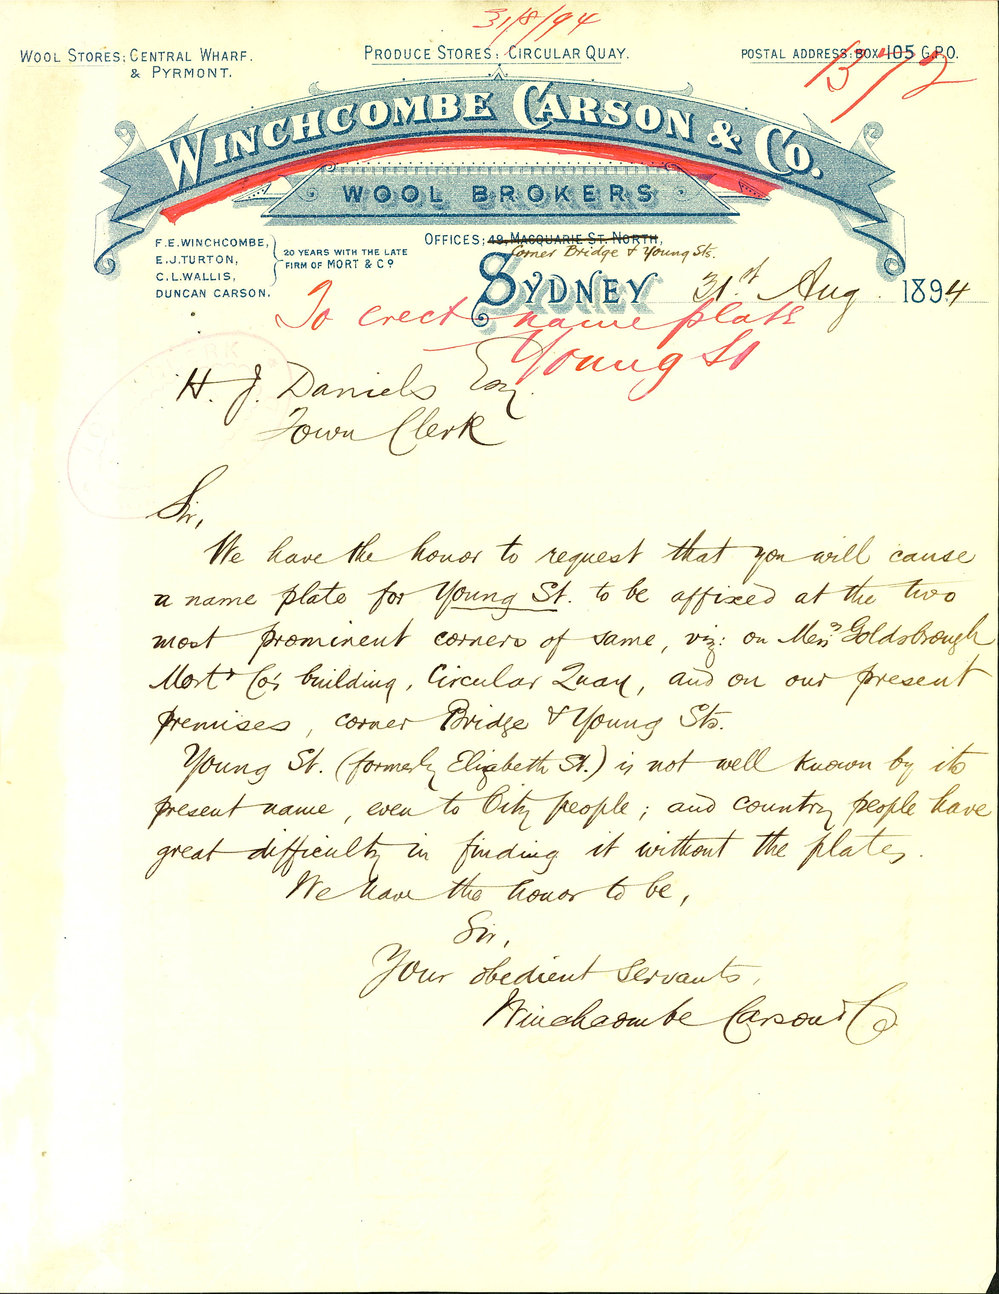 31/8/94
WOOL STORES: CENTRAL WHARF. & PYRMONT.
PRODUCE STORES: CIRCULAR QUAY.
POSTAL ADDRESS: BOX 105 G.P.O.
WINCHCOMBE CARSON & CO.
WOOL BROKERS
F. E. WINCHCOMBE,
E. J. TURTON,
C. L. WALLIS,
DUNCAN CARSON.
20 YEARS WITH THE LATE
FIRM OF MORT & CO
OFFICES: 49, MACQUARIE ST. NORTH,
Corner Bridge & Young Sts.
SYDNEY 31st Aug 1894
To erect name plate
Young St
H. J. Daniels Esq.
Town Clerk
Sir,
We have the honor to request that you will cause
a name plate for Young St. to be affixed at the two
most prominent corners of same, viz: on Messrs Goldsbrough
Mort & Co's building, Circular Quay, and on our present
premises, corner Bridge & Young Sts.
Young St. (formerly Elizabeth St.) is not well known by its
present name, even to City people; and country people have
great difficulty in finding it without the plates.
We have the honor to be,
Sir,
Your obedient servants,
Winchcombe Carson & Co